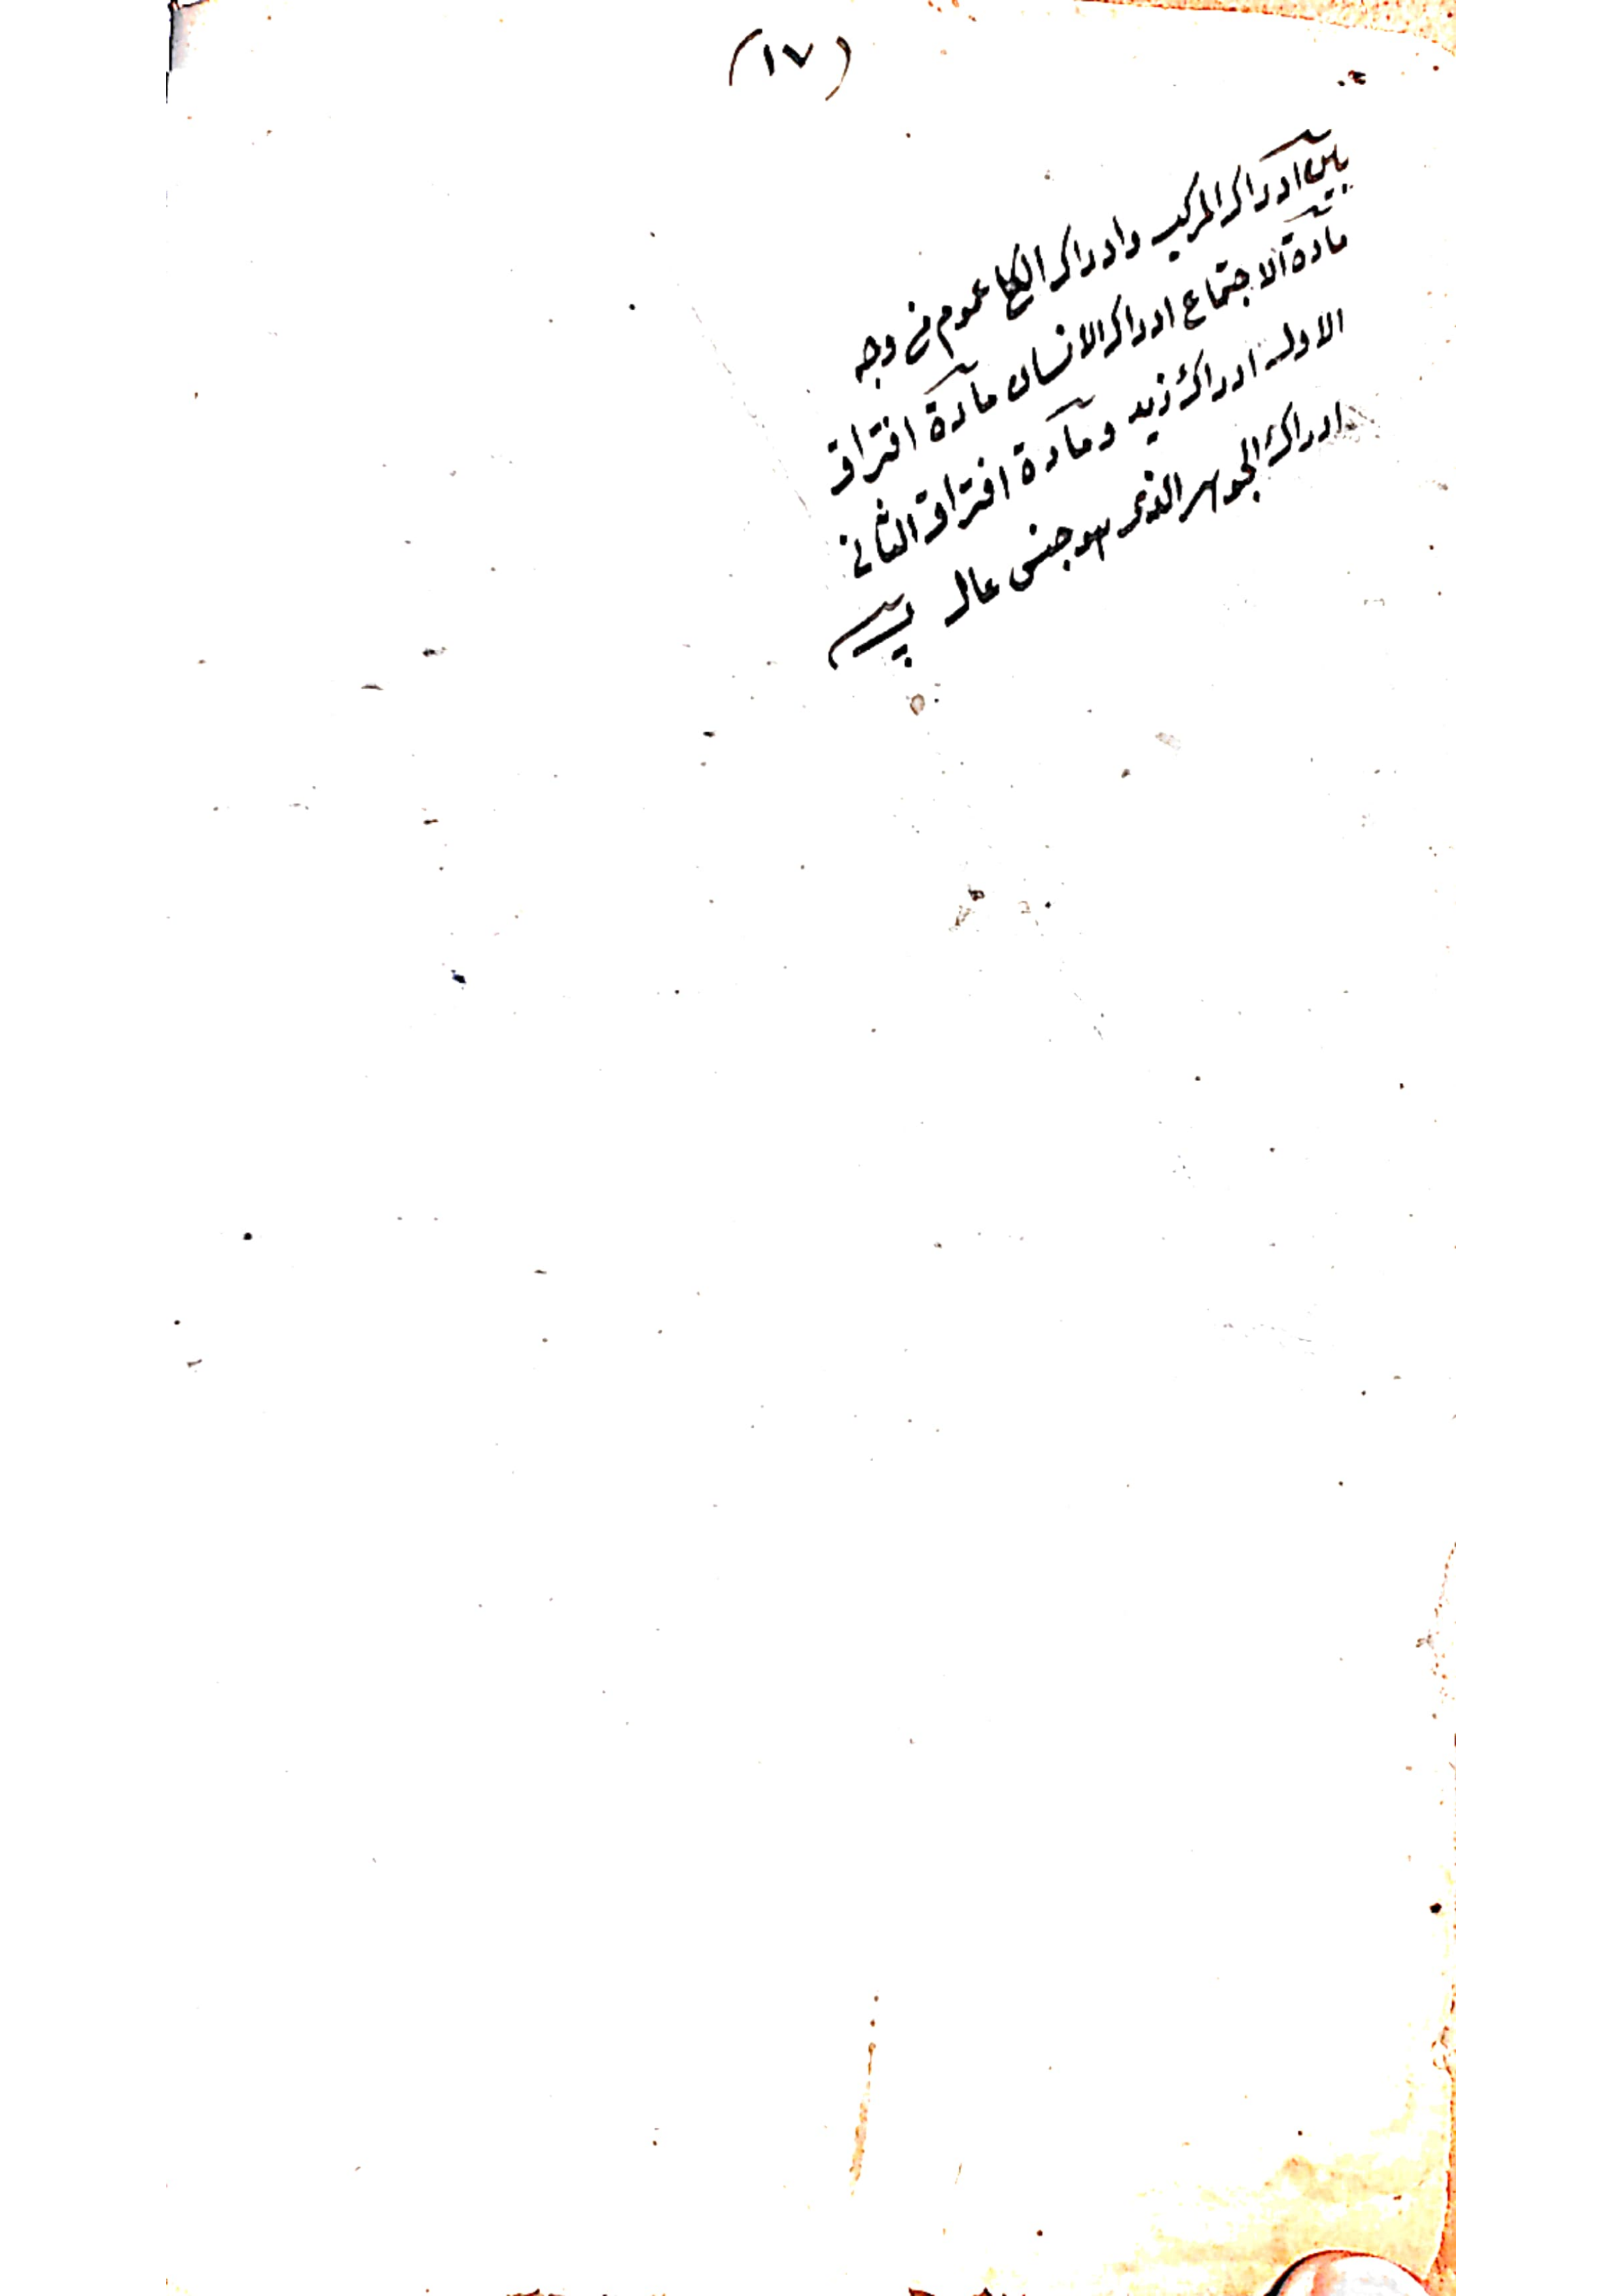 (١٧)
بين ادراك المركب وادراك الكلي عموم من وجه
مادة الاجتماع ادراك الانسان مادة افتراق
الاول ادراك زيد ومادة افتراق الثاني
ادراك الجوهر الذي هو جنس عال